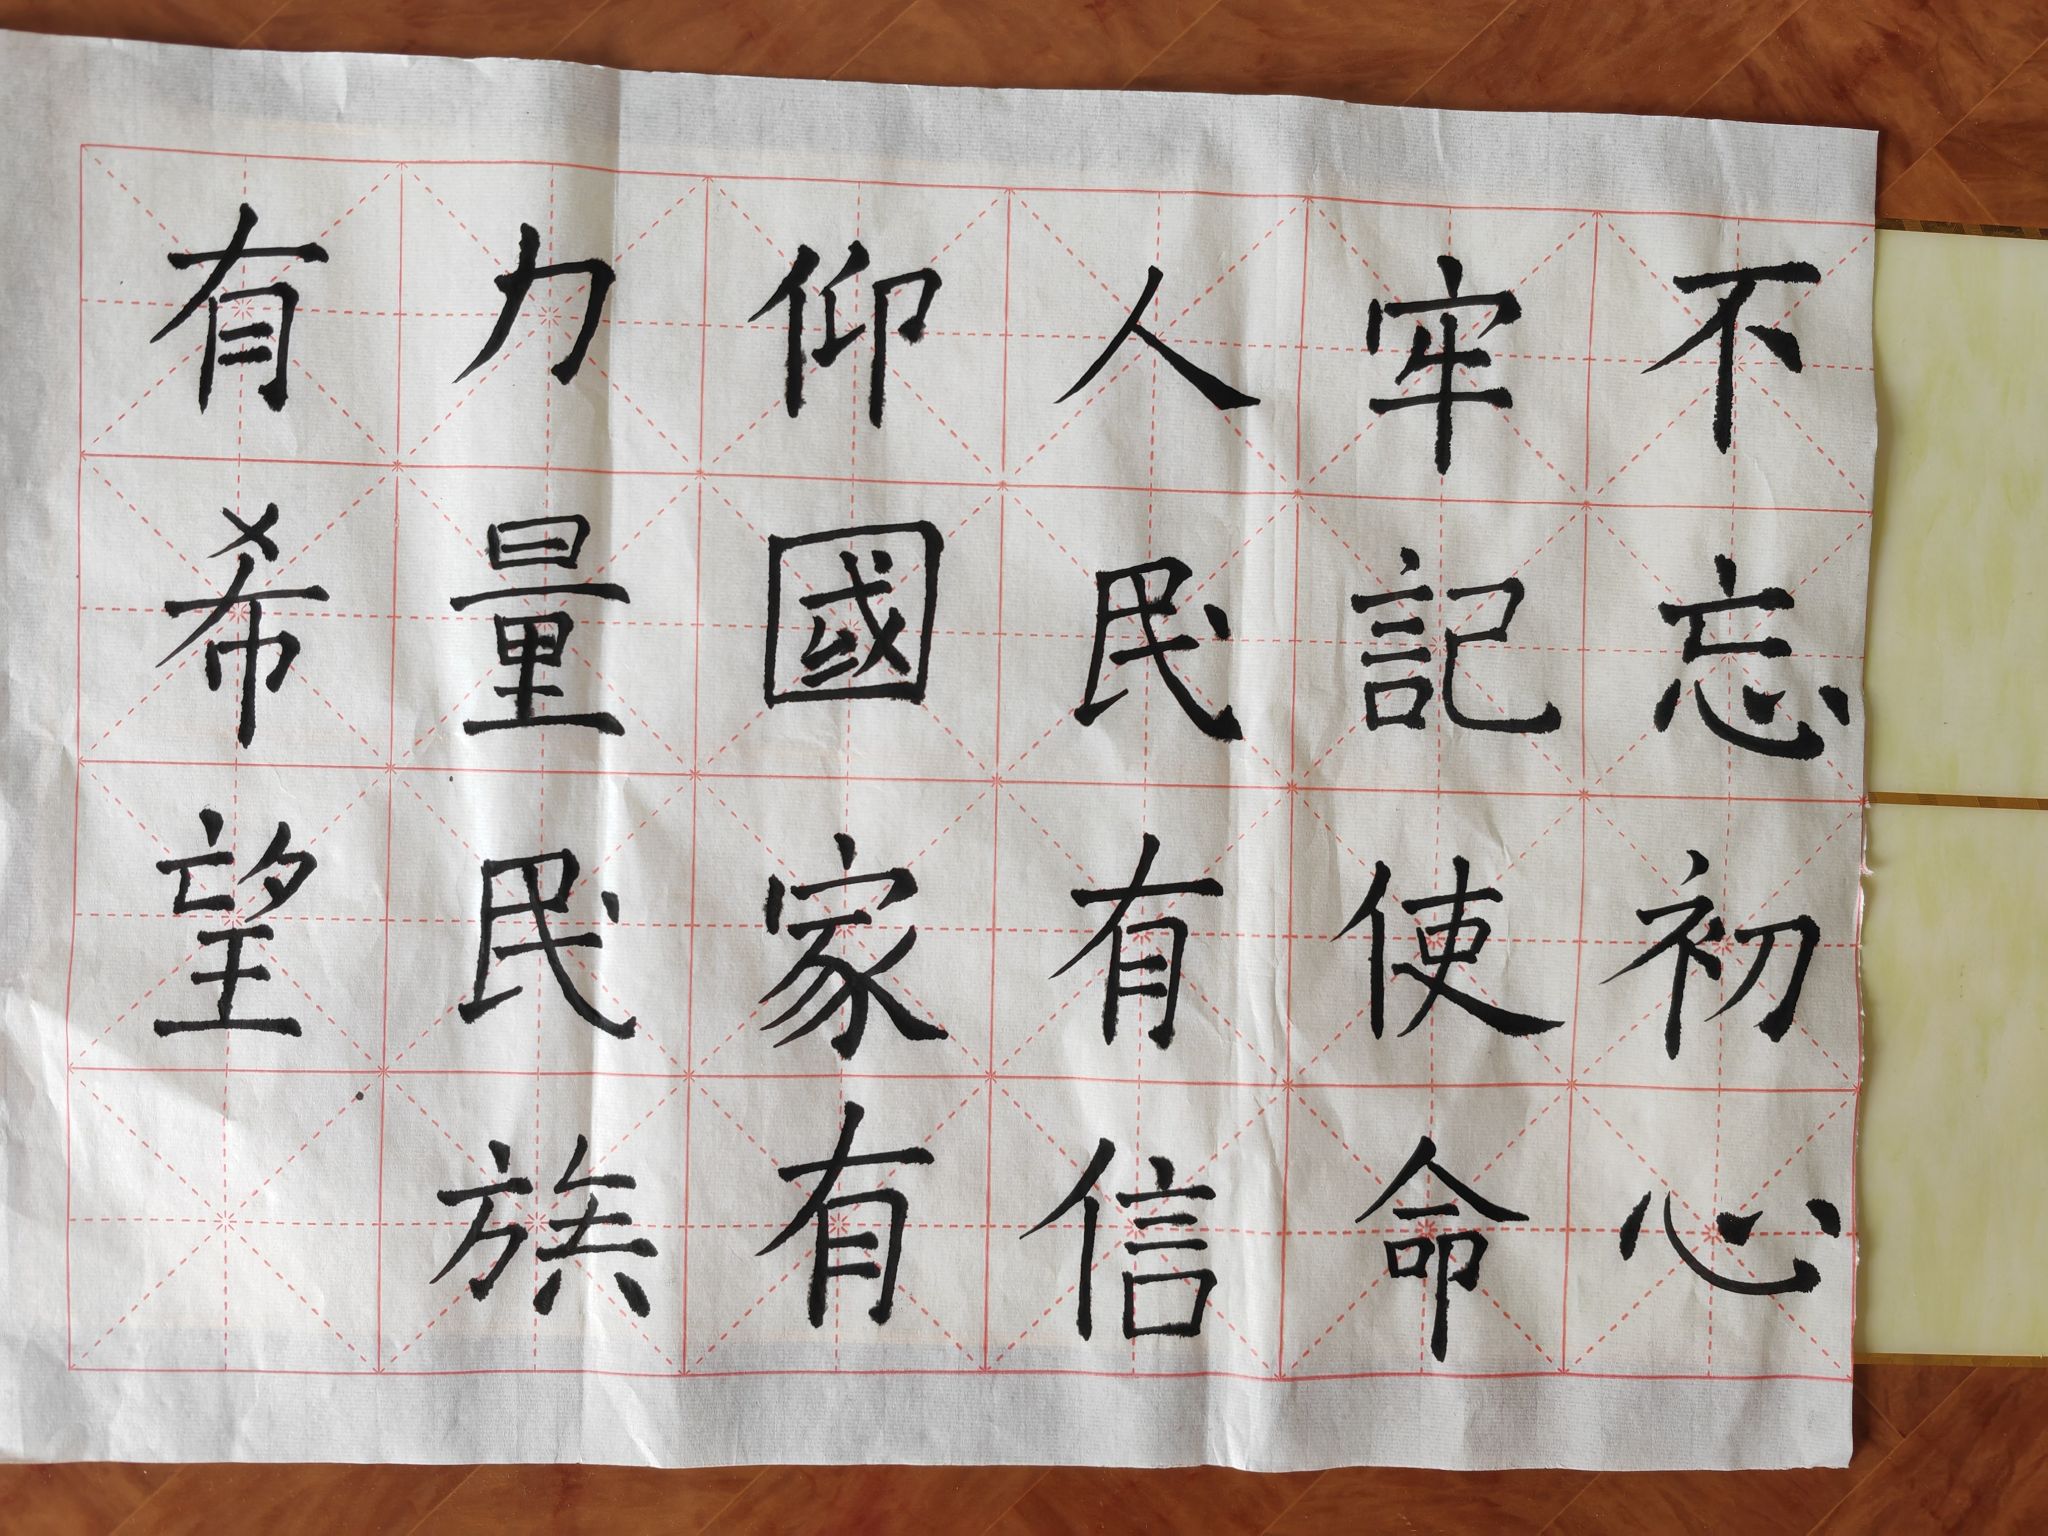 不忘初心
牢記使命
人民有信
仰國家有
力量民族
有希望